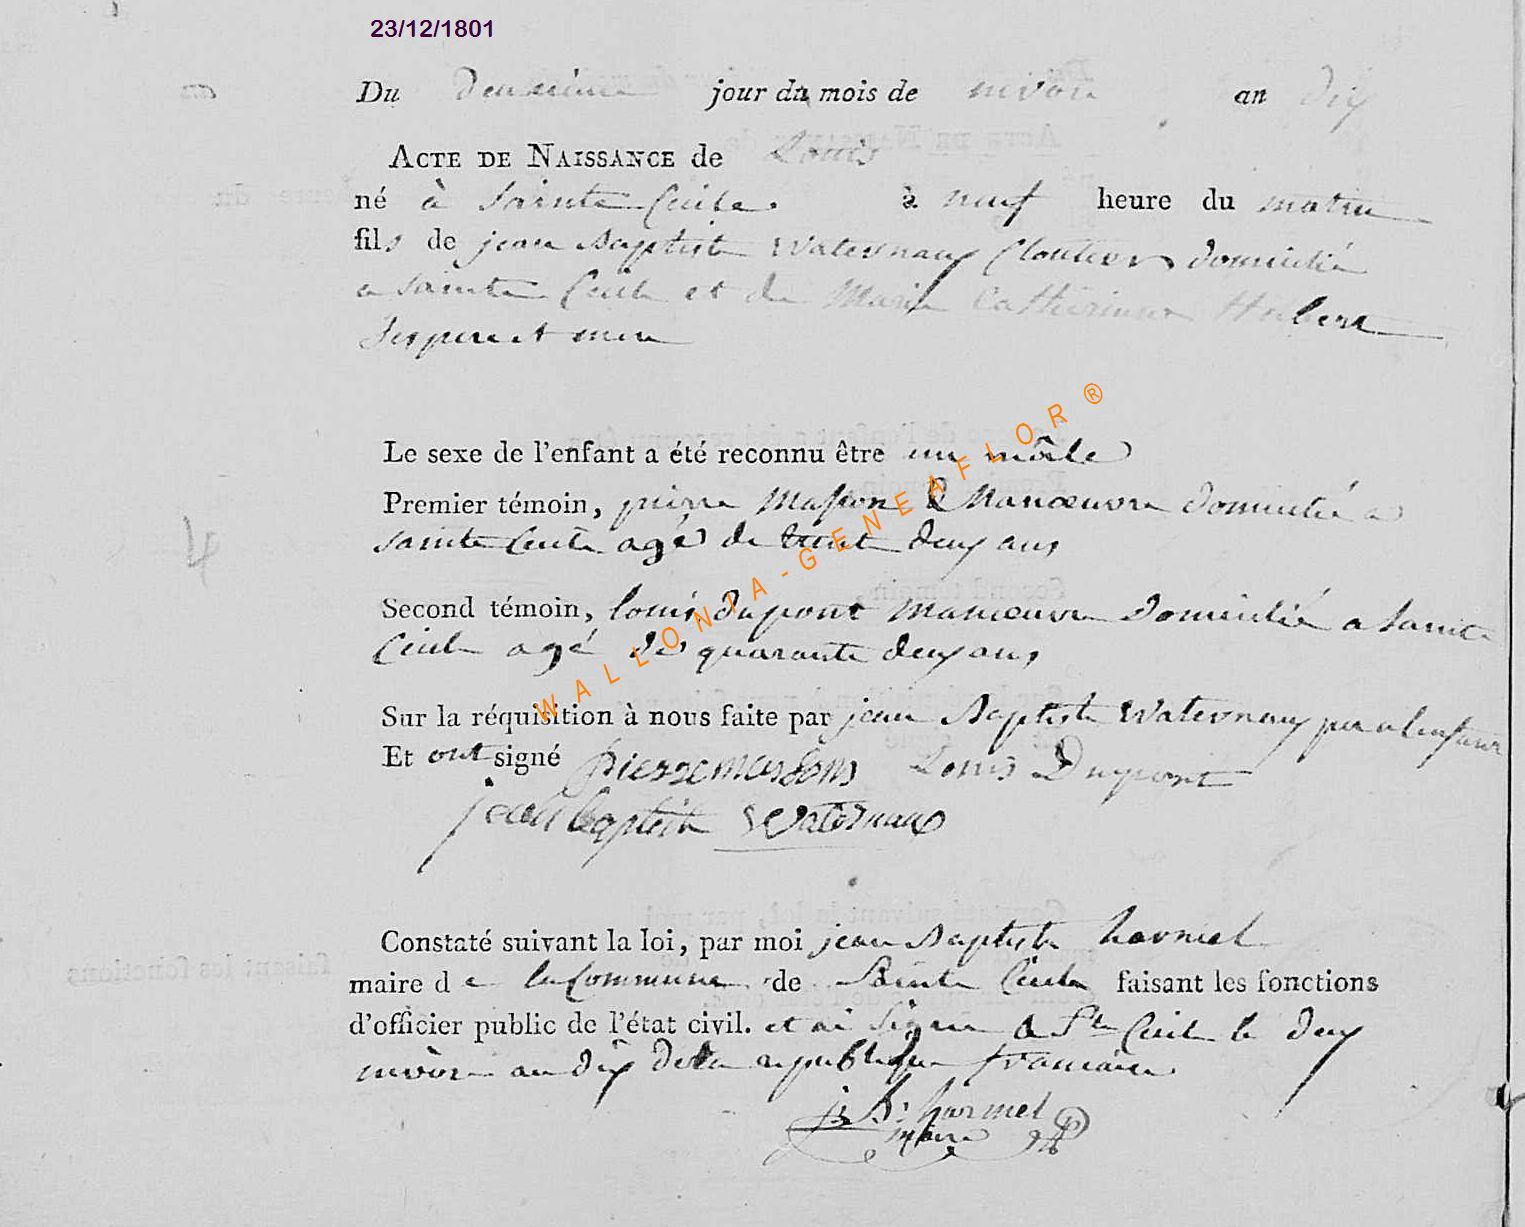 23/12/1801
Du deuxième jour du mois de nivose an dix
ACTE DE NAISSANCE de Louis
né à Sainte Cecile à neuf heure du matin
fils de jean Baptiste Waternaux Cloutier domicilié
a Sainte Cecile et de Marie Catherinne Hubert
Ses pere et mere
Le sexe de l'enfant a été reconnu être un mâle
Premier témoin, pierre Masson Manœuvre domicilié a
Sainte Cecile agé de trente deux ans
Second témoin, louis dupont Manœuvre Domicilié a Sainte
Cecile agé de quarante deux ans
Sur la réquisition à nous faite par jean Baptiste Waternaux pere a l'enfant
Et ont signé pierre massons Louis Dupont
jean baptiste Waternaux
Constaté suivant la loi, par moi jean Baptiste harmel
maire de la Commune de Sainte Cecile faisant les fonctions
d'officier public de l'état civil. et ai signé a Ste Cecile le deux
nivose an dix de la republique francaise
j: B: harmel
maire
4
WALLONIA-GENEAFLOR®